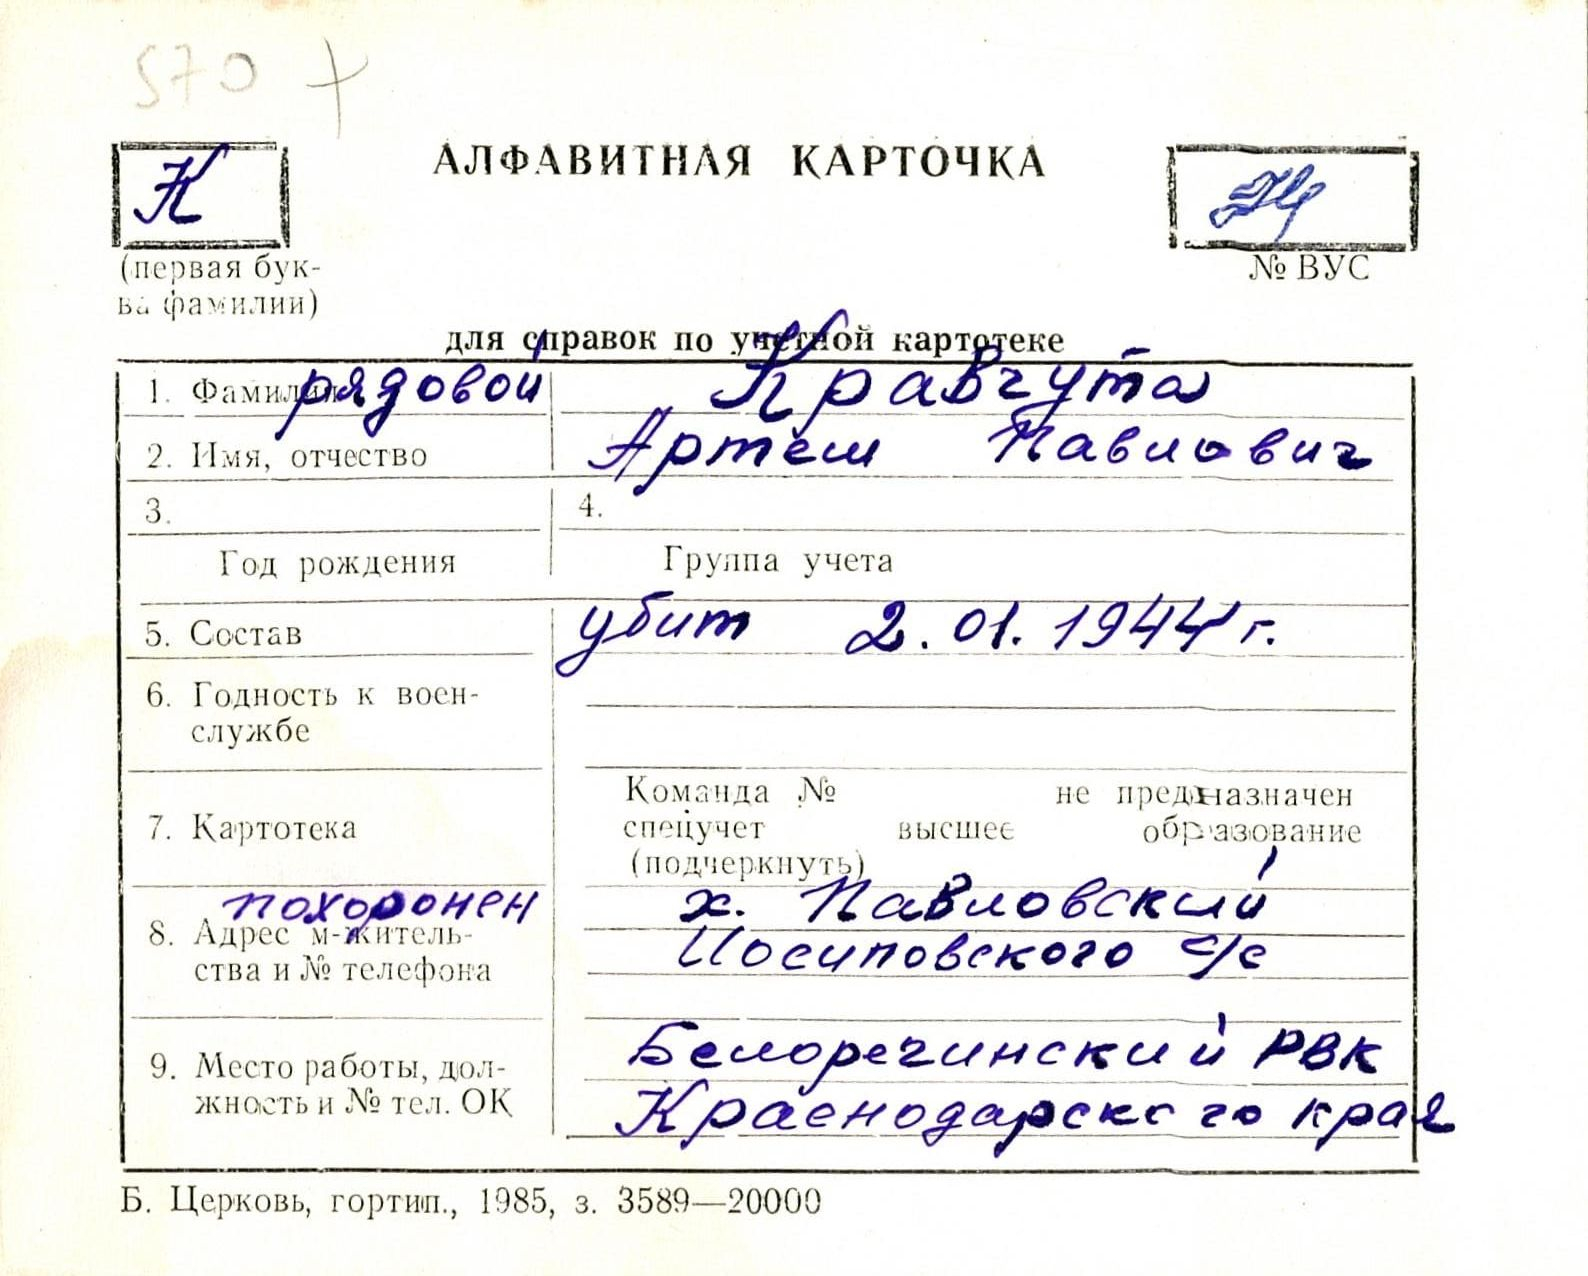 570 +
К
АЛФАВИТНАЯ КАРТОЧКА
(первая бук-
ва фамилии)
№ ВУС
для справок по учетной картотеке
1. Фамилия рядовой Кравчута
2. Имя, отчество Артем Павлович
3. 4.
Год рождения Группа учета
5. Состав убит 2.01.1944 г.
6. Годность к воен-
службе
Команда № не предназначен
7. Картотека спецучет высшее образование
(подчеркнуть)
похоронен х. Павловский
8. Адрес м-житель- Иосиповского с/с
ства и № телефона
Белоречинский РВК
9. Место работы, дол-
жность и № тел. ОК Краснодарского края
Б. Церковь, гортип., 1985, з. 3589—20000